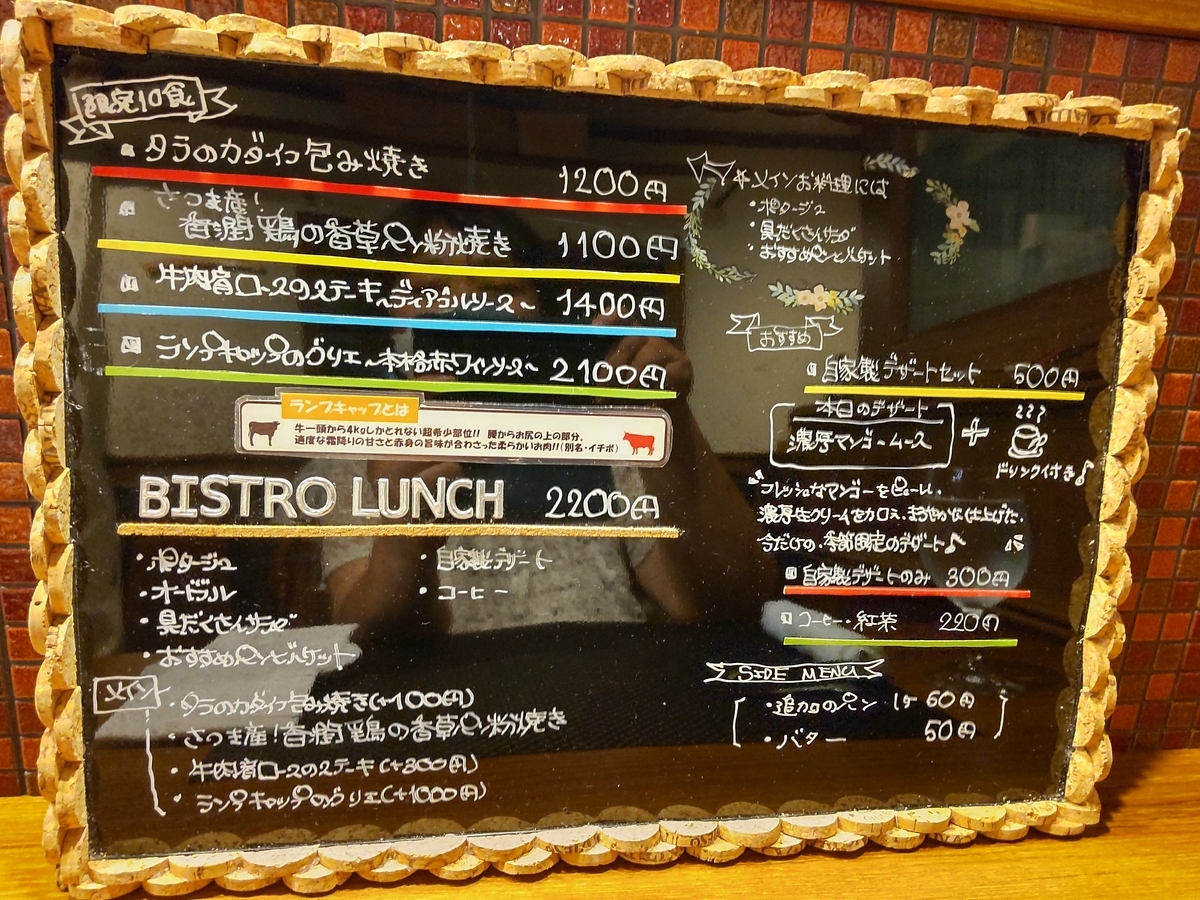 限定10食
タラのカダイフ包み焼き 1200円
さつま産!
香潤鶏の香草パン粉焼き 1100円
牛肉肩ロースのステーキ~ディアブルソース~ 1400円
ランプキャップのグリエ~本格赤ワインソース~ 2100円
ランプキャップとは
牛一頭から4kgしかとれない超希少部位!! 腰からお尻の上の部分。
適度な霜降りの甘さと赤身の旨味が合わさった柔らかいお肉!!(別名・イチボ)
BISTRO LUNCH 2200円
・ポタージュ
・オードブル
・具だくさんサラダ
・おすすめパンとバケット
・自家製デザート
・コーヒー
メイン
・タラのカダイフ包み焼き(+100円)
・さつま産!香潤鶏の香草パン粉焼き
・牛肉肩ロースのステーキ(+300円)
・ランプキャップのグリエ(+1000円)
*メインお料理には
・ポタージュ
・具だくさんサラダ
・おすすめパンとバケット
おすすめ
自家製デザートセット 500円
本日のデザート
濃厚マンゴームース
+
ドリンク付き♪
フレッシュなマンゴーをピューレし、
濃厚生クリームを加え、まろやかに仕上げた、
今だけの、季節限定のデザート♪
自家製デザートのみ 300円
コーヒー・紅茶 220円
SIDE MENU
・追加のパン 1ケ 60円
・バター 50円